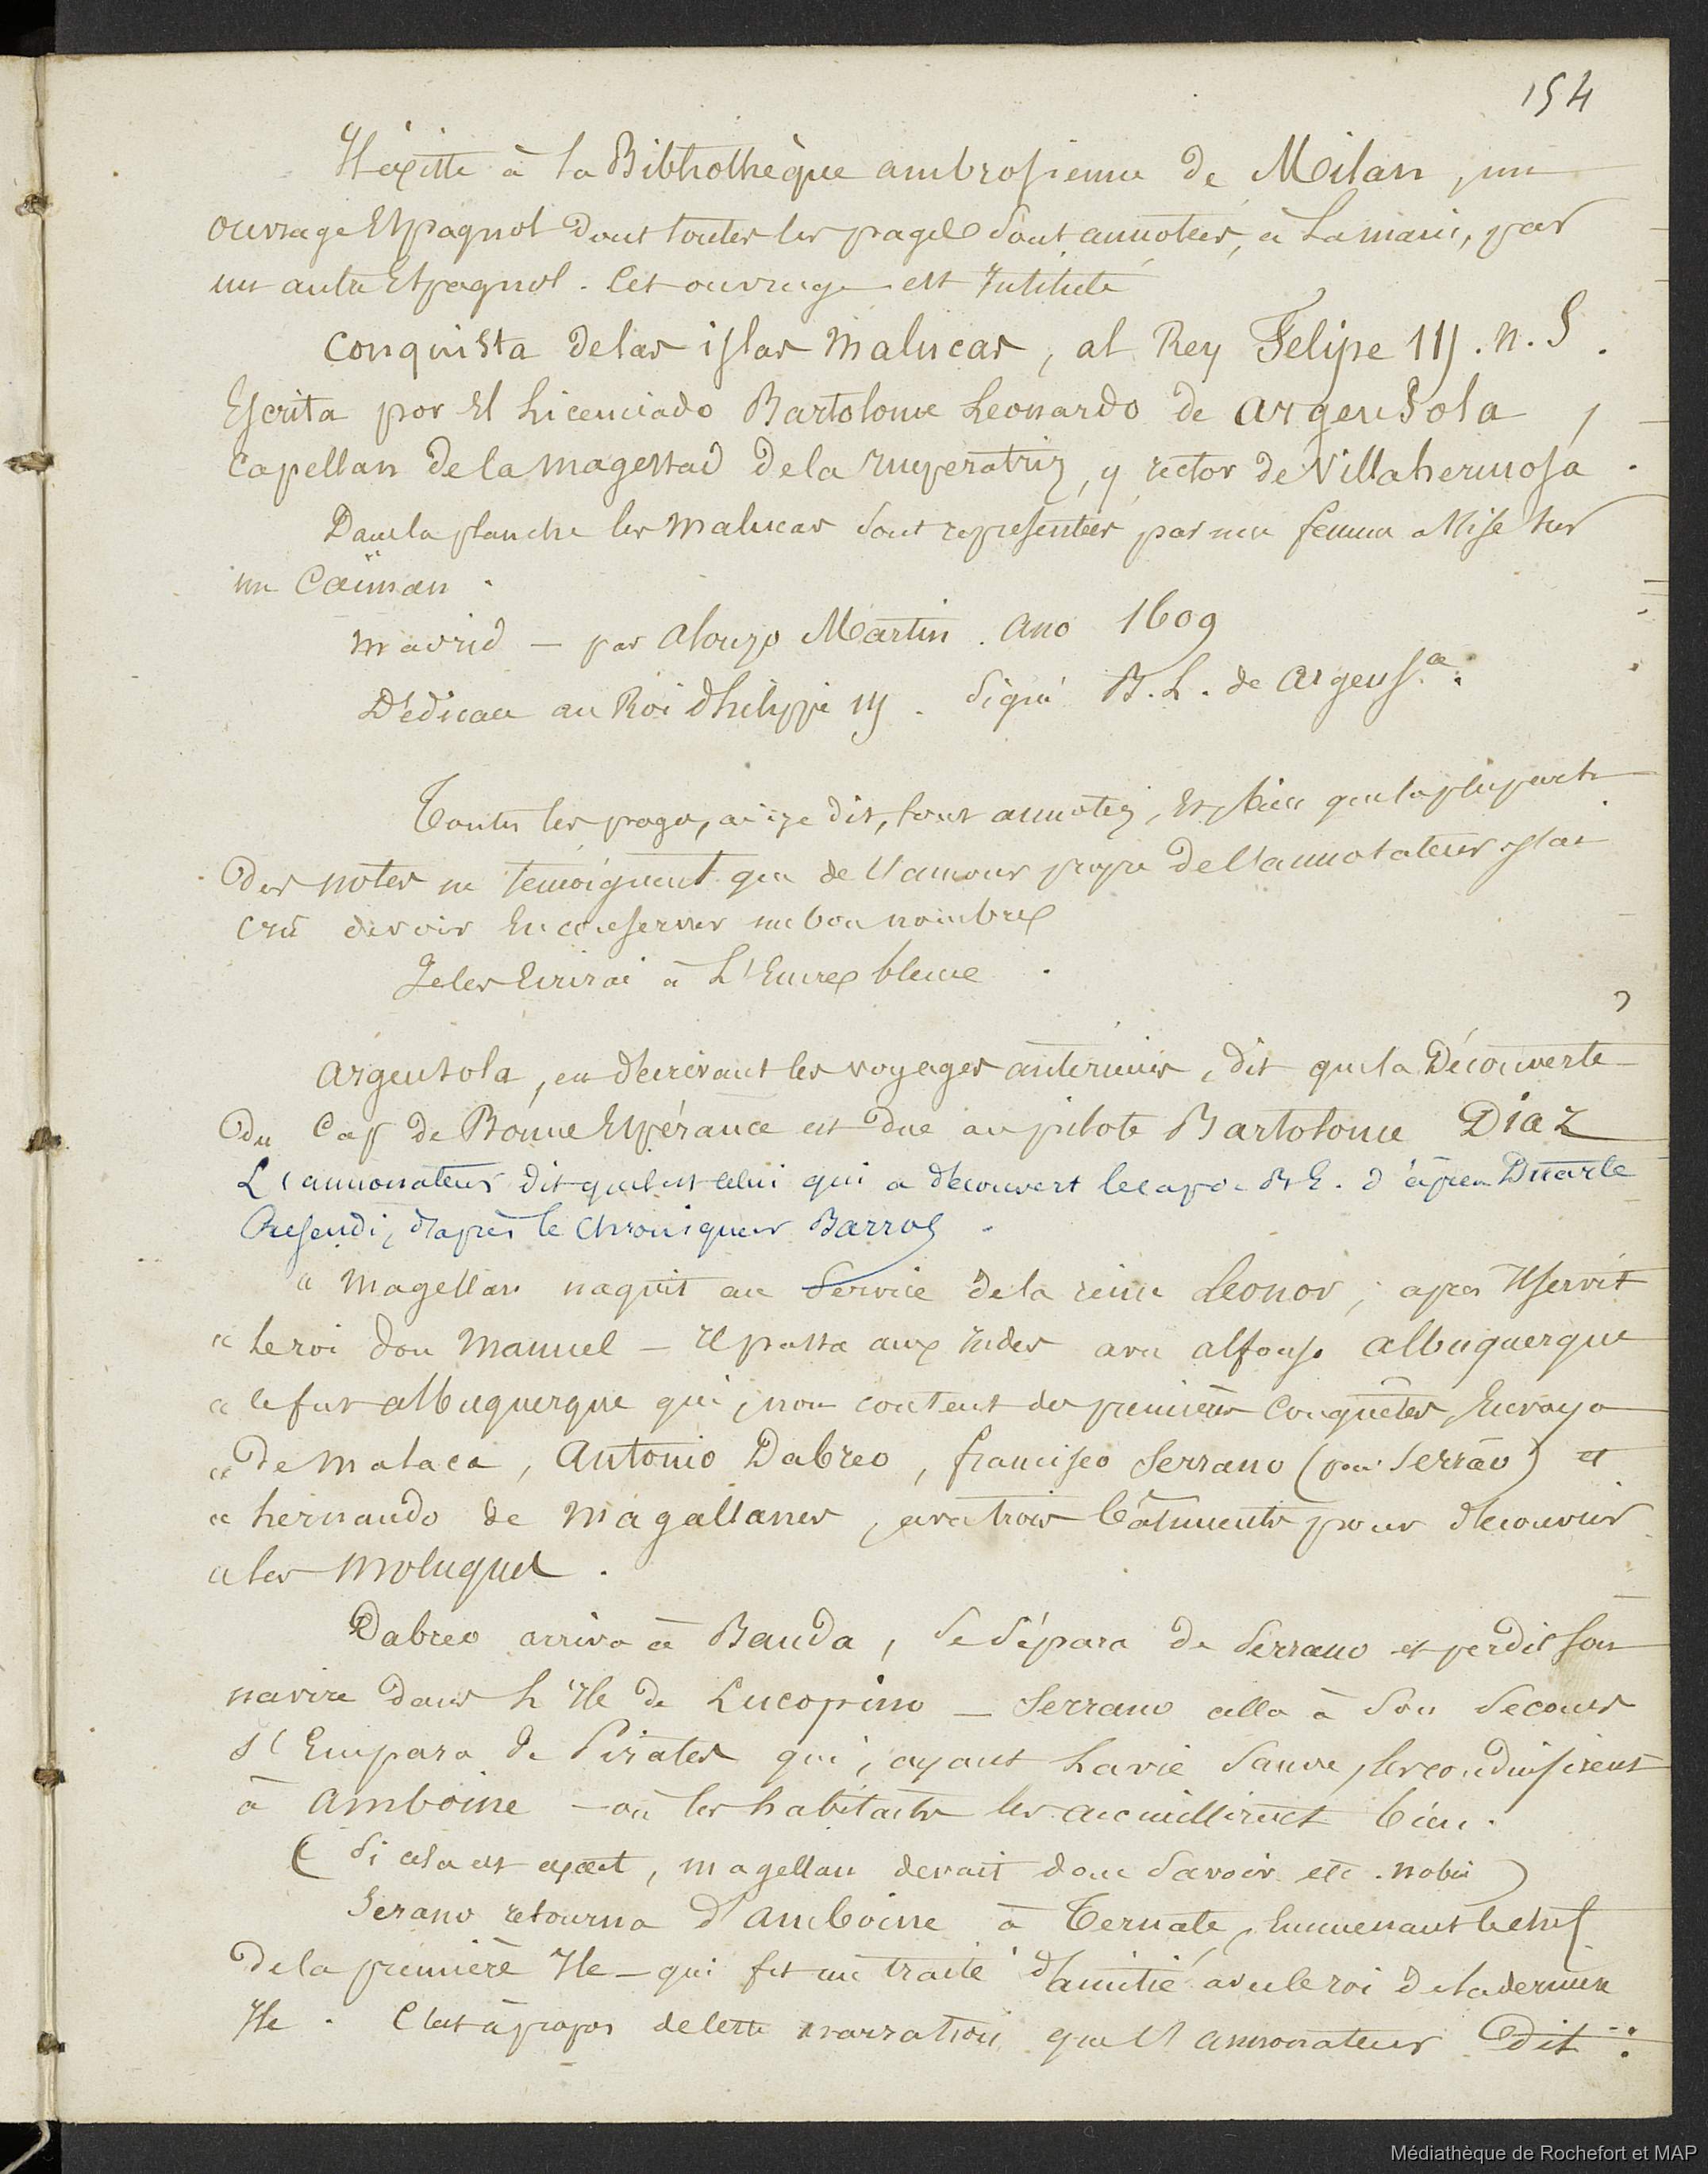 154
Il existe à la Bibliothèque ambrosienne de Milan, un
ouvrage Espagnol dont toutes les pages sont annotées, à la main, par
un autre Espagnol. Cet ouvrage est Intitulé
Conquista de las islas Malucas, al Rey Felipe IIJ. N. S.
Escrita por El Licenciado Bartolome Leonardo de Argensola,
Capellan de la Magestad de la Imperatriz, y rector de Villahermosa.
Dans la planche les Malucas sont représentées par une femme assise sur
un Caïman.
Madrid — par Alonzo Martin. Ano 1609
Dédicace au Roi Philippe IIJ. Signé B. L. de Argens.a.
Toutes les pages, ai-je dit, sont annotées, et bien que la plupart
des notes ne témoignent que de l'amour propre de l'annotateur j'ai
crû devoir en conserver un bon nombre
Je les Ecrirai à l'Encre bleue.
Argensola, en décrivant les voyages antérieurs, dit que la Découverte
du Cap de Bonne Espérance est due au pilote Bartolome Diaz
L'annonateur dit que c'est celui qui a découvert le cap de B E. d'après Duarte
Resendi, d'après le Chroniqueur Barros.
« Magellan naquit au Service de la reine Leonor; après Il servit
« le roi don Manuel — Il passa aux Indes avec Alfonso Albuquerque
« ce fut Albuquerque qui, non content des premières Conquêtes, Envoya
« de Malaca, Antonio Dabreo, Francisco Serrano (pour Serrão) et
« hernando de Magallanes, avec trois bâtiments pour découvrir
« les Moluques.
Dabreo arriva à Banda, se sépara de Serrano et perdit son
navire dans l'Ile de Lucopino — Serrano alla à son secours
s'Empara de Pirates qui, ayant la vie sauve, les conduisirent
à Amboine — où les habitants les accueillirent bien.
(Si cela est exact, Magellan devait donc savoir etc. nobis)
Serano retourna d'Amboine à Ternate, Emmenant le chef
de la première Ile — qui fit un traité d'amitié avec le roi de la dernière
Ile. C'est à propos de cette narration que l'annonateur dit :
Médiathèque de Rochefort et MAP